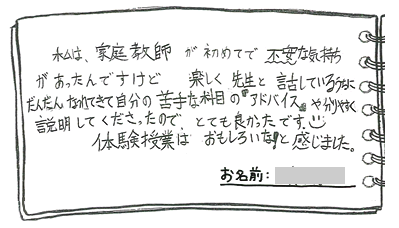 私は、家庭教師 が初めてで 不安な気持ち
があったんですけど 楽しく 先生と 話しているうちに
だんだん なれてきて自分の 苦手な科目の『アドバイス』や分りやすく
説明してくださったので、とても良かったです。
体験授業は おもしろいな!と感じました。
お名前: